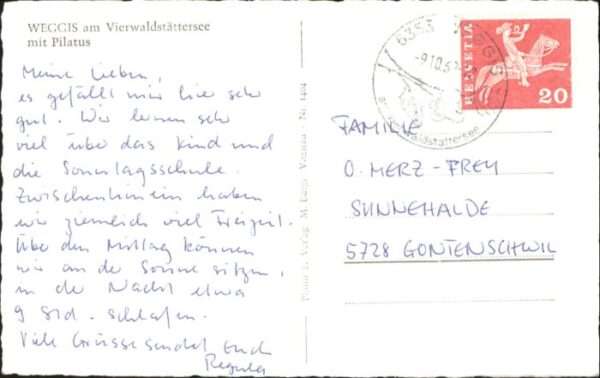 WEGGIS am Vierwaldstättersee
mit Pilatus
Meine Lieben,
es gefällt mir hier sehr
gut. Wir lernen sehr
viel über das Kind und
die Sonntagsschule.
Zwischenhinein haben
wir ziemlich viel Freizeit.
Über den Mittag können
wir an der Sonne sitzen,
in der Nacht etwa
9 Std. schlafen.
Viele Grüsse sendet Euch
Regula
Photo u. Verlag M.
Nr. 1404
6353 WEGGIS
-9.10.6
Vierwaldstättersee
HELVETIA
20
FAMILIE
O. MERZ-FREY
SUNNEHALDE
5728 GONTENSCHWIL